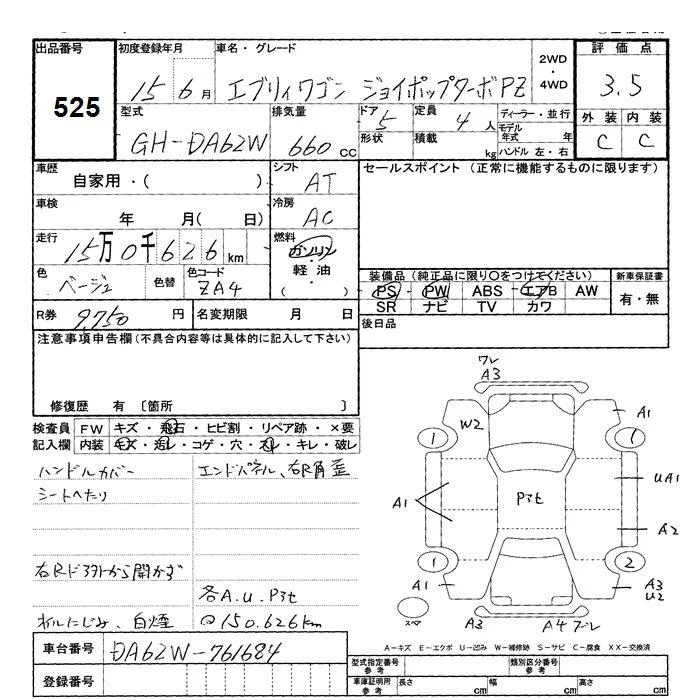 出品番号 初度登録年月 車名・グレード 評価点
525 15年6月 エブリィワゴン ジョイポップターボPZ 2WD・4WD 3.5
型式 排気量 ドア 定員 ディーラー・並行 外装 内装
GH-DA62W 660cc 5 4人 モデル年式 年 C C
形状 積載 kg ハンドル 左・右
車歴 シフト セールスポイント (正常に機能するものに限ります)
自家用・( ) AT
車検 冷房
年 月( 日) AC
走行 燃料
15万0千626km ガソリン・軽油・( )
色 色替 色コード 装備品 (純正品に限り○をつけてください) 新車保証書
ベージュ ZA4 PS PW ABS エアB AW 有・無
SR ナビ TV カワ
R券 9,750円 名変期限 月 日 後日品
注意事項申告欄(不具合内容等は具体的に記入して下さい)
修復歴 有 〔箇所 〕
検査員 FW キズ・飛石・ヒビ割・リペア跡・×要
記入欄 内装 キズ・汚レ・コゲ・穴・スレ・キレ・破レ
ハンドルカバー エンドパネル、右R角歪
シートへたり
右Rドア外から開かず
各A.U.P3t
オイルにじみ、白煙 @150,626km
ワレ
A3
W2 A1
1 1
A1 P3t UA1
A2
1 2
A1 A3
U2
スペア A3 A4ワレ
A-キズ E-エクボ U-凹み W-補修跡 S-サビ C-腐食 XX-交換済
車台番号 DA62W-761684
登録番号
型式指定番号 参考 類別区分番号 参考
車庫証明用 参考 長さ cm 幅 cm 高さ cm